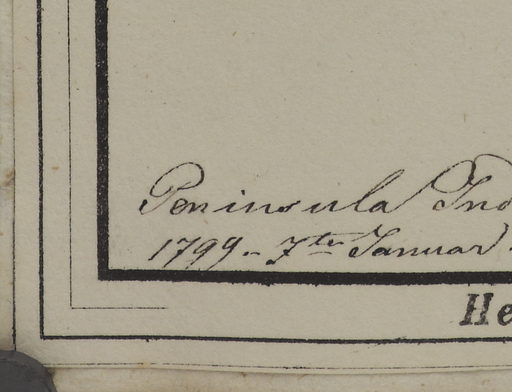 Peninsula Ind
1799 - 7ter Januar
He